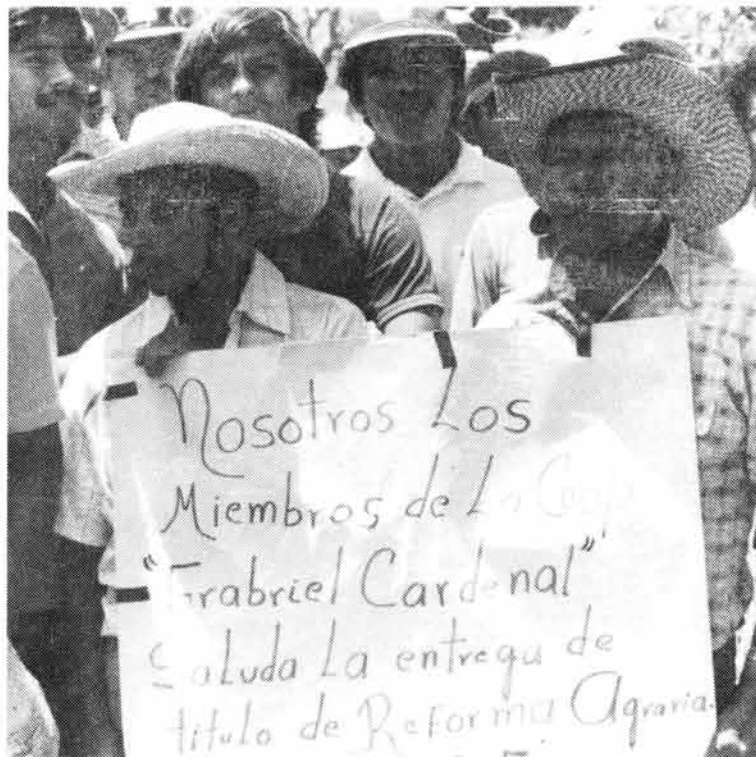 Nosotros Los
Miembros de La Coop
"Grabriel Cardenal"
Saluda La entrega de
titulo de Reforma Agraria.